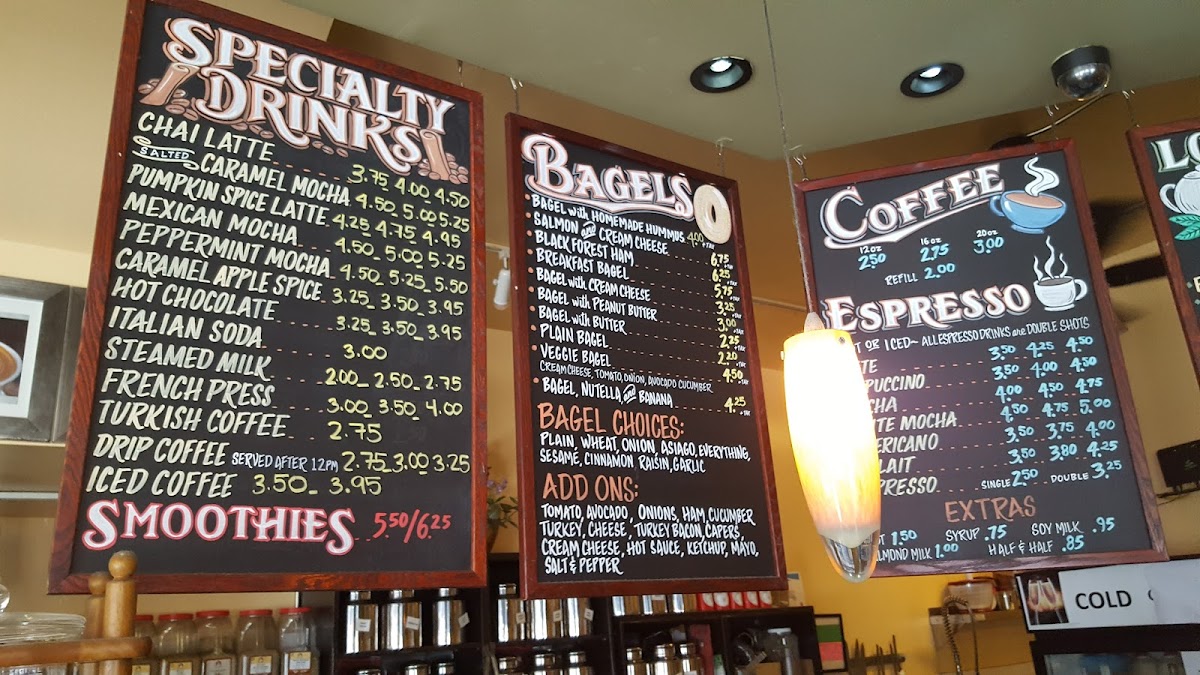 SPECIALTY
DRINKS
CHAI LATTE 3.75 4.00 4.50
SALTED CARAMEL MOCHA 4.50 5.00 5.25
PUMPKIN SPICE LATTE 4.25 4.75 4.95
MEXICAN MOCHA 4.50 5.00 5.25
PEPPERMINT MOCHA 4.50 5.25 5.50
CARAMEL APPLE SPICE 3.25 3.50 3.95
HOT CHOCOLATE 3.25 3.50 3.95
ITALIAN SODA 3.00
STEAMED MILK 2.00 2.50 2.75
FRENCH PRESS 3.00 3.50 4.00
TURKISH COFFEE 2.75
DRIP COFFEE SERVED AFTER 12PM 2.75 3.00 3.25
ICED COFFEE 3.50 3.95
SMOOTHIES 5.50/6.25
BAGELS
BAGEL with HOMEMADE HUMMUS 4.00 + TAX
SALMON and CREAM CHEESE 6.75 + TAX
BLACK FOREST HAM 6.25 + TAX
BREAKFAST BAGEL 5.75 + TAX
BAGEL with CREAM CHEESE 3.25 + TAX
BAGEL with PEANUT BUTTER 3.00 + TAX
BAGEL with BUTTER 2.25 + TAX
PLAIN BAGEL 2.20 + TAX
VEGGIE BAGEL 4.50 + TAX
CREAM CHEESE, TOMATO, ONION, AVOCADO CUCUMBER
BAGEL, NUTELLA and BANANA 4.25 + TAX
BAGEL CHOICES:
PLAIN, WHEAT, ONION, ASIAGO, EVERYTHING,
SESAME, CINNAMON RAISIN, GARLIC
ADD ONS:
TOMATO, AVOCADO, ONIONS, HAM, CUCUMBER
TURKEY, CHEESE, TURKEY BACON, CAPERS,
CREAM CHEESE, HOT SAUCE, KETCHUP, MAYO,
SALT & PEPPER
COFFEE
12 oz 16 oz 20 oz
2.50 2.75 3.00
REFILL 2.00
ESPRESSO
OR ICED~ ALL ESPRESSO DRINKS are DOUBLE SHOTS
3.50 4.25 4.50
3.50 4.00 4.50
4.00 4.50 4.75
MOCHA 4.50 4.75 5.00
3.50 3.75 4.00
3.50 3.80 4.25
SINGLE 2.50 DOUBLE 3.25
EXTRAS
1.50 SYRUP .75 SOY MILK .95
ALMOND MILK 1.00 HALF & HALF .85
COLD